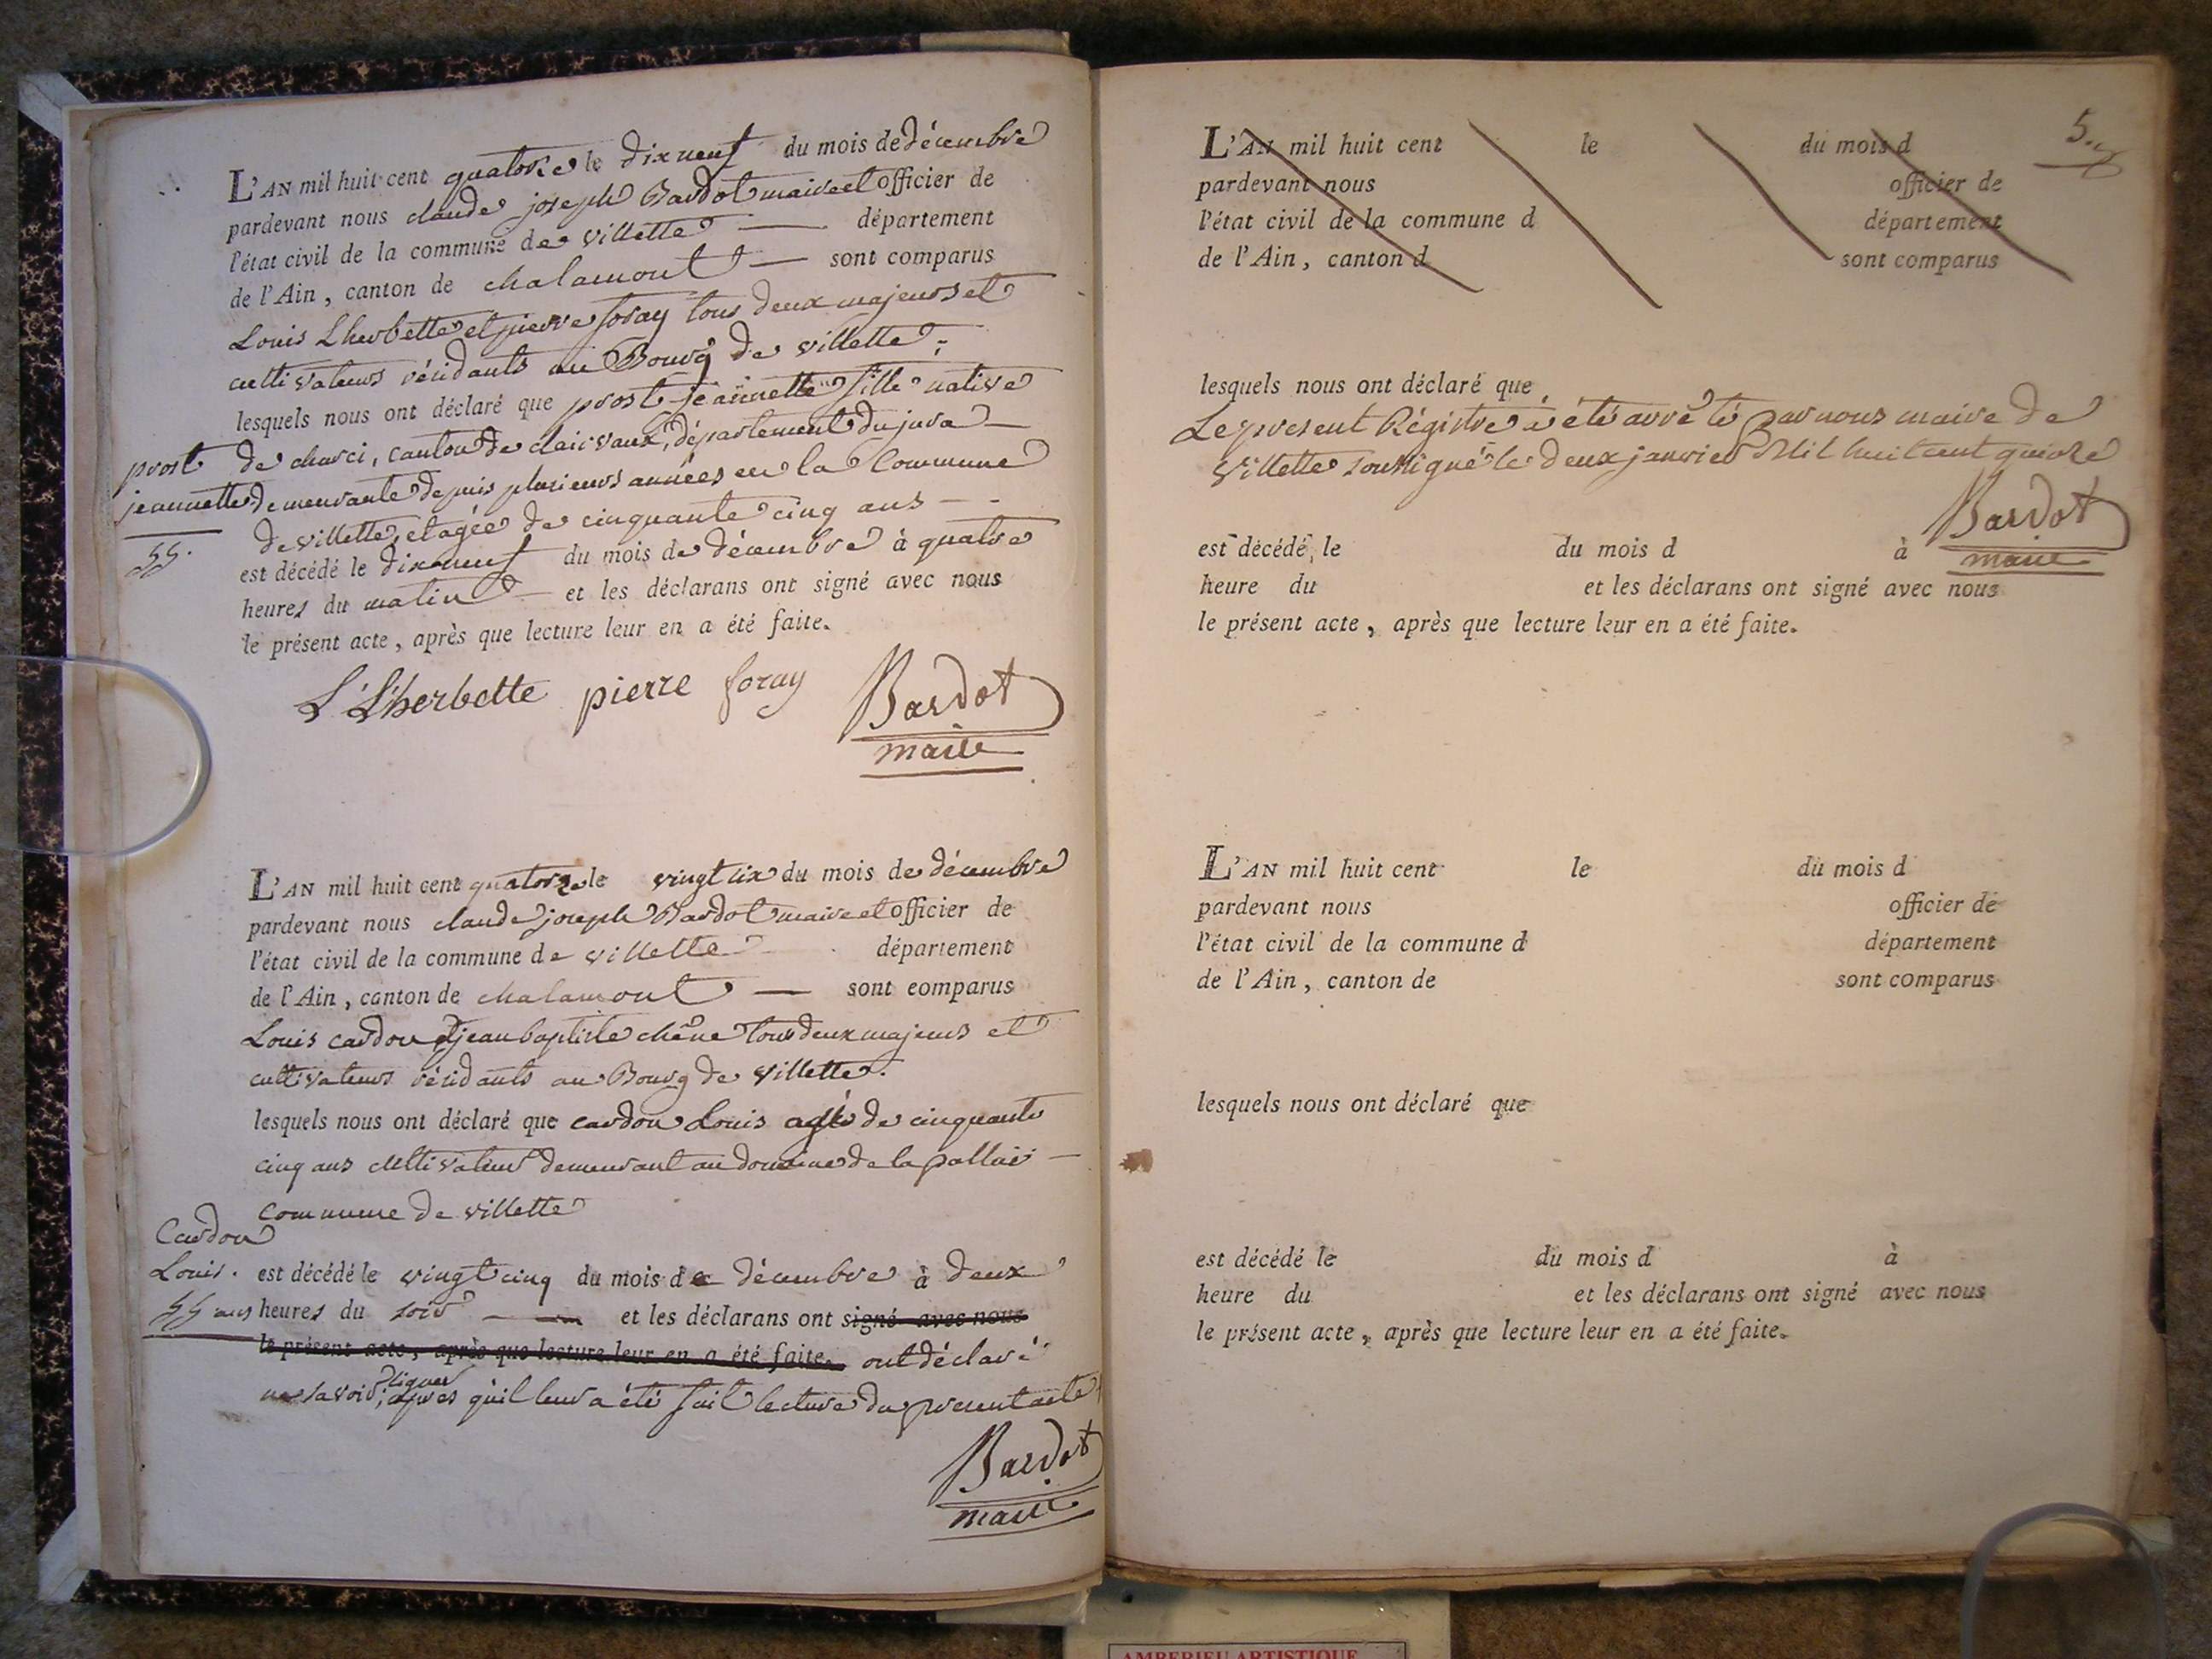 L'AN mil huit cent quatorze le dix neuf du mois de décembre
pardevant nous claude joseph Bardot maire et officier de
l'état civil de la commune de villette département
de l'Ain, canton de chalamont sont comparus
Louis Lherbette et pierre foray tous deux majeurs et
cultivateurs résidants au Bourg de villette;
lesquels nous ont déclaré que prost jeannette fille native
de charci, canton de clairvaux, département du jura
demeurante depuis plusieurs années en la Commune
de villette, et agée de cinquante cinq ans
prost
jeannette
55.
est décédé le dix neuf du mois de décembre à quatre
heures du matin et les déclarans ont signé avec nous
le présent acte, après que lecture leur en a été faite.
L Lherbette pierre foray Bardot
maire
L'AN mil huit cent quatorze le vingt six du mois de décembre
pardevant nous claude joseph Bardot maire et officier de
l'état civil de la commune de villette département
de l'Ain, canton de chalamont sont comparus
Louis cardon et jean baptiste chêne tous deux majeurs et
cultivateurs résidants au Bourg de villette.
lesquels nous ont déclaré que cardon Louis agé de cinquante
cinq ans cultivateur demeurant au domaine de la
commune de villette
Cardon
Louis.
55 ans
est décédé le vingt cinq du mois de décembre à deux
heures du soir et les déclarans ont signé avec nous
le présent acte, après que lecture leur en a été faite. ont déclaré
ne savoir signer, après qu'il leur a été fait lecture du present acte
Bardot
maire
5.
L'AN mil huit cent le du mois d
pardevant nous officier de
l'état civil de la commune d département
de l'Ain, canton d sont comparus
lesquels nous ont déclaré que
Le present Régistre a été arrêté par nous maire de
villette soussigné le deux janvier Mil huit cent quinze
Bardot
maire
est décédé le du mois d à
heure du et les déclarans ont signé avec nous
le présent acte, après que lecture leur en a été faite.
L'AN mil huit cent le du mois d
pardevant nous officier de
l'état civil de la commune d département
de l'Ain, canton de sont comparus
lesquels nous ont déclaré que
est décédé le du mois d à
heure du et les déclarans ont signé avec nous
le présent acte, après que lecture leur en a été faite.
AMBERIEU ARTISTIQUE